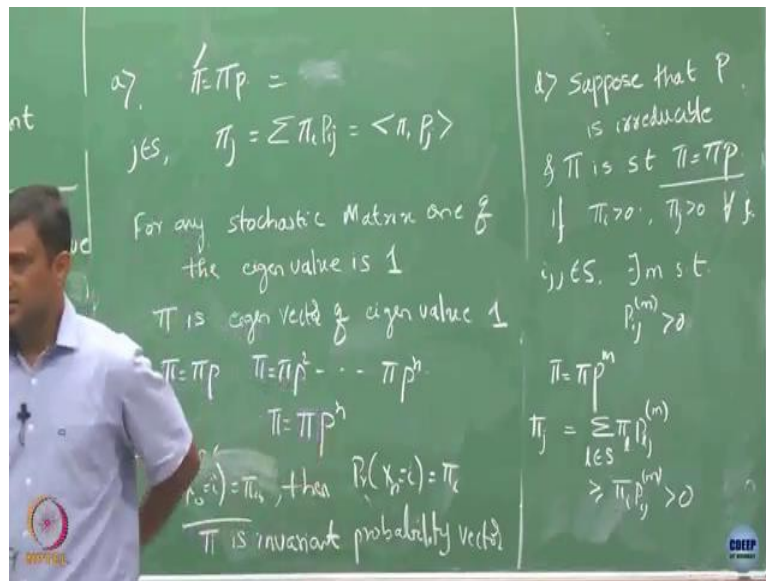 nt
ue
a) π = πp =
j∈S, π_j = Σ π_i P_ij = <π, P_j>
For any stochastic Matrix one of
the eigen value is 1
π is eigen vector of eigen value 1
π = πp π = πp² - - - πpⁿ
π = πpⁿ
=i) = π_i, then Pr(X_n=i) = π_i
π is invariant probability vector
d) Suppose that P
is irreducable
& π is st π = πp
if π_i>0, π_j>0 ∀ j.
i,j ∈S. ∃m s t.
P_ij^(m) >0
π = πp^m
π_j = Σ_{l∈S} π_l P_lj^(m)
≥ π_i P_ij^(m) >0
NPTEL
CDEEP
IIT BOMBAY